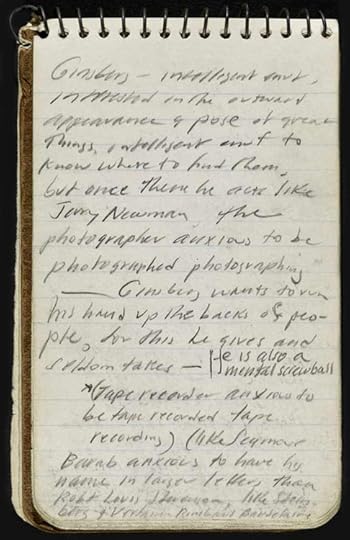 Ginsberg — intelligent enuf,
interested in the outward
appearance & pose of great
things, intelligent enuf to
know where to find them,
but once there he acts like
Jerry Newman the
photographer anxious to be
photographed photographing
— Ginsberg wants to run
his hand up the backs of peo-
ple, for this he gives and
seldom takes — He is also a
mental screwball
*(Tape recorder anxious to
be tape recorded tape
recording) (like Seymour
Barab anxious to have his
name in larger letters than
Robt Louis Stevenson, like Steinberg
& Verlaine Rimbaud Baudelaire